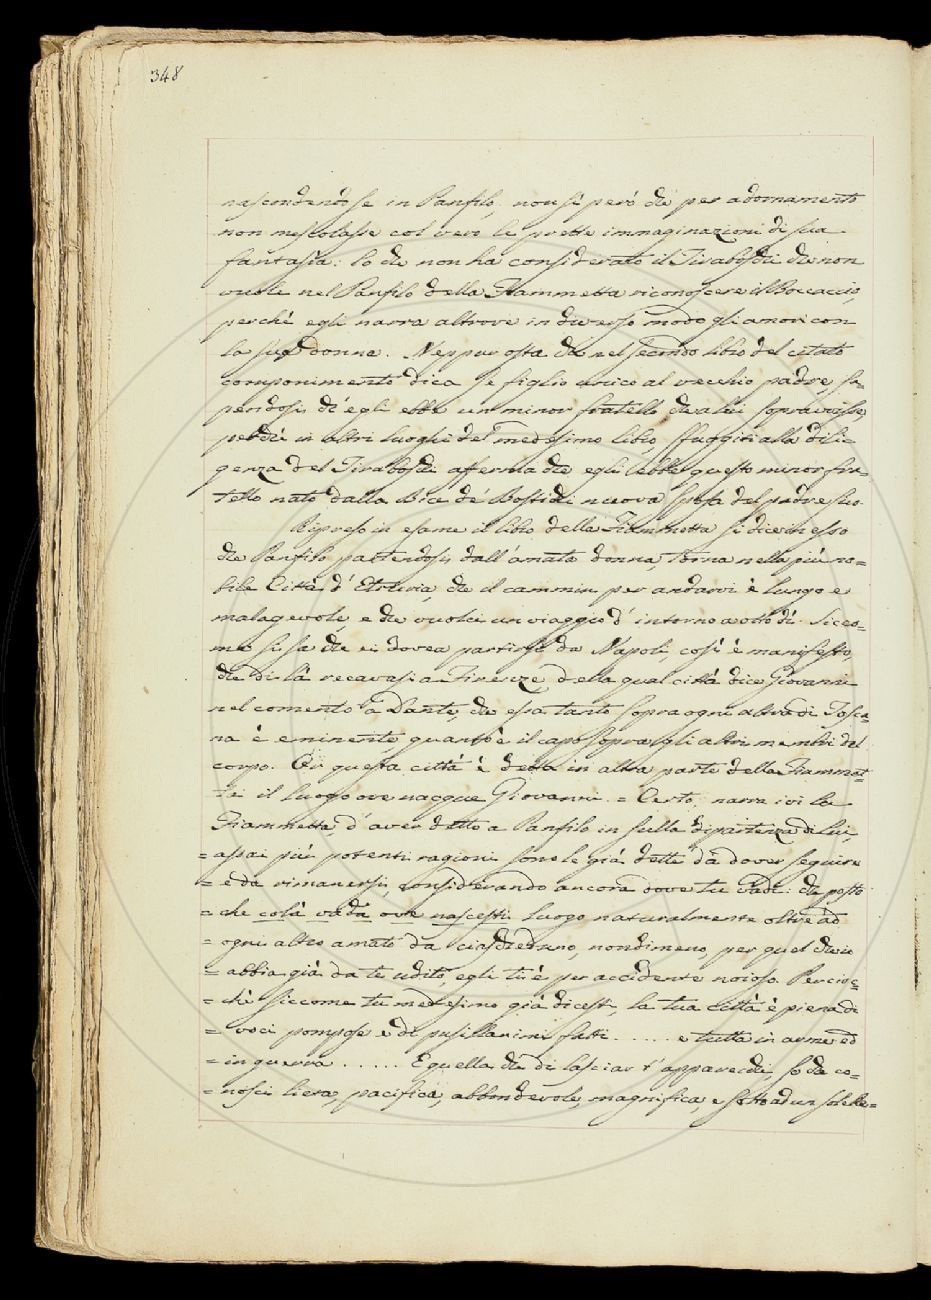 348
nascondendo se in Panfilo, non sì però che per adornamento
non mescolasse col vero le prette immaginazioni di sua
fantasia: lo che non ha considerato il Tiraboschi che non
vuole nel Panfilo della Fiammetta riconoscere il Boccaccio,
perchè egli narra altrove in diverso modo gli amori con
la sua donna. Neppur osta che nel secondo libro del citato
componimento dica se figlio unico al vecchio padre, sa=
pendosi ch'egli ebbe un minor fratello che a lui sopravvisse,
perchè in altri luoghi del medesimo libro, sfuggiti alla dili
genza del Tiraboschi afferma che egli ebbe questo minor fra=
tello nato dalla Bice de' Bostichi nuova sposa del padre suo.
Ripreso in esame il libro della Fiammetta si dice in esso
che Panfilo partendosi dall'amata donna, torna nella più no=
bile Città d'Etruria, che il cammin per andarvi è lungo e
malagevole, e che vuolci un viaggio d'intorno a otto dì. Sicco=
me si sa che ei dovea partirsi da Napoli, così è manifesto,
che di là recavasi a Firenze, della qual città dice Giovanni
nel comento a Dante, che essa tanto sopra ogni altra di Tosca=
na è eminente, quanto è il capo sopra gli altri membri del
corpo. Or questa città è detta in altra parte della Fiammet=
ta il luogo ove nacque Giovanni. = Certo, narra ivi la
Fiammetta, d'aver detto a Panfilo in sulla dipartenza di lui,
= assai più potenti ragioni sono le già dette da dover seguire
= e da rimanersi, considerando ancora dove tu vadi: che posto
= che colà vada ove nascesti luogo naturalmente oltre ad
= ogni altro amato da ciascheduno, nondimeno, per quel che io
= abbia già da te udito, egli tu è per accidente noioso. Percioc=
= chè siccome tu medesimo già dicesti, la tua Città è piena di
= voci pompose e di pusillanimi fatti ...... e tutta in arme ed
= in guerra ...... E quella che di lasciar t'apparecchi, so che co=
= nosci lieta, pacifica, abbondevole, magnifica, e sotto ad un solo Re=